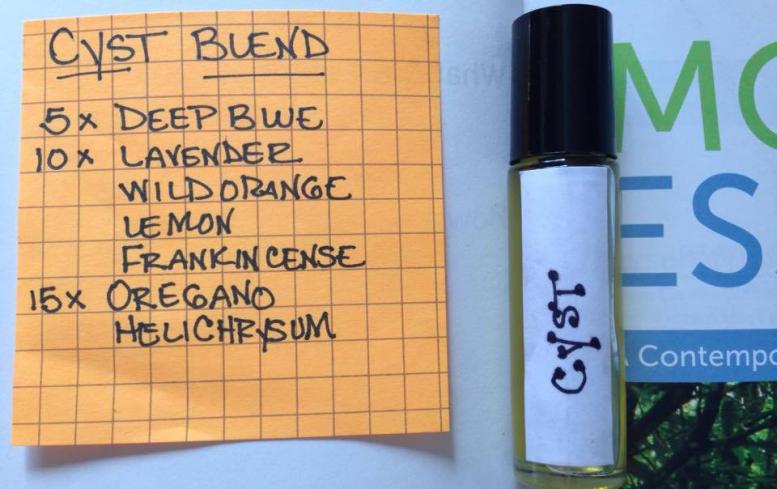 CYST BLEND
5x DEEP BLUE
10x LAVENDER
WILD ORANGE
LEMON
FRANKINCENSE
15x OREGANO
HELICHRYSUM
CYST
MO
ES
A Contempo